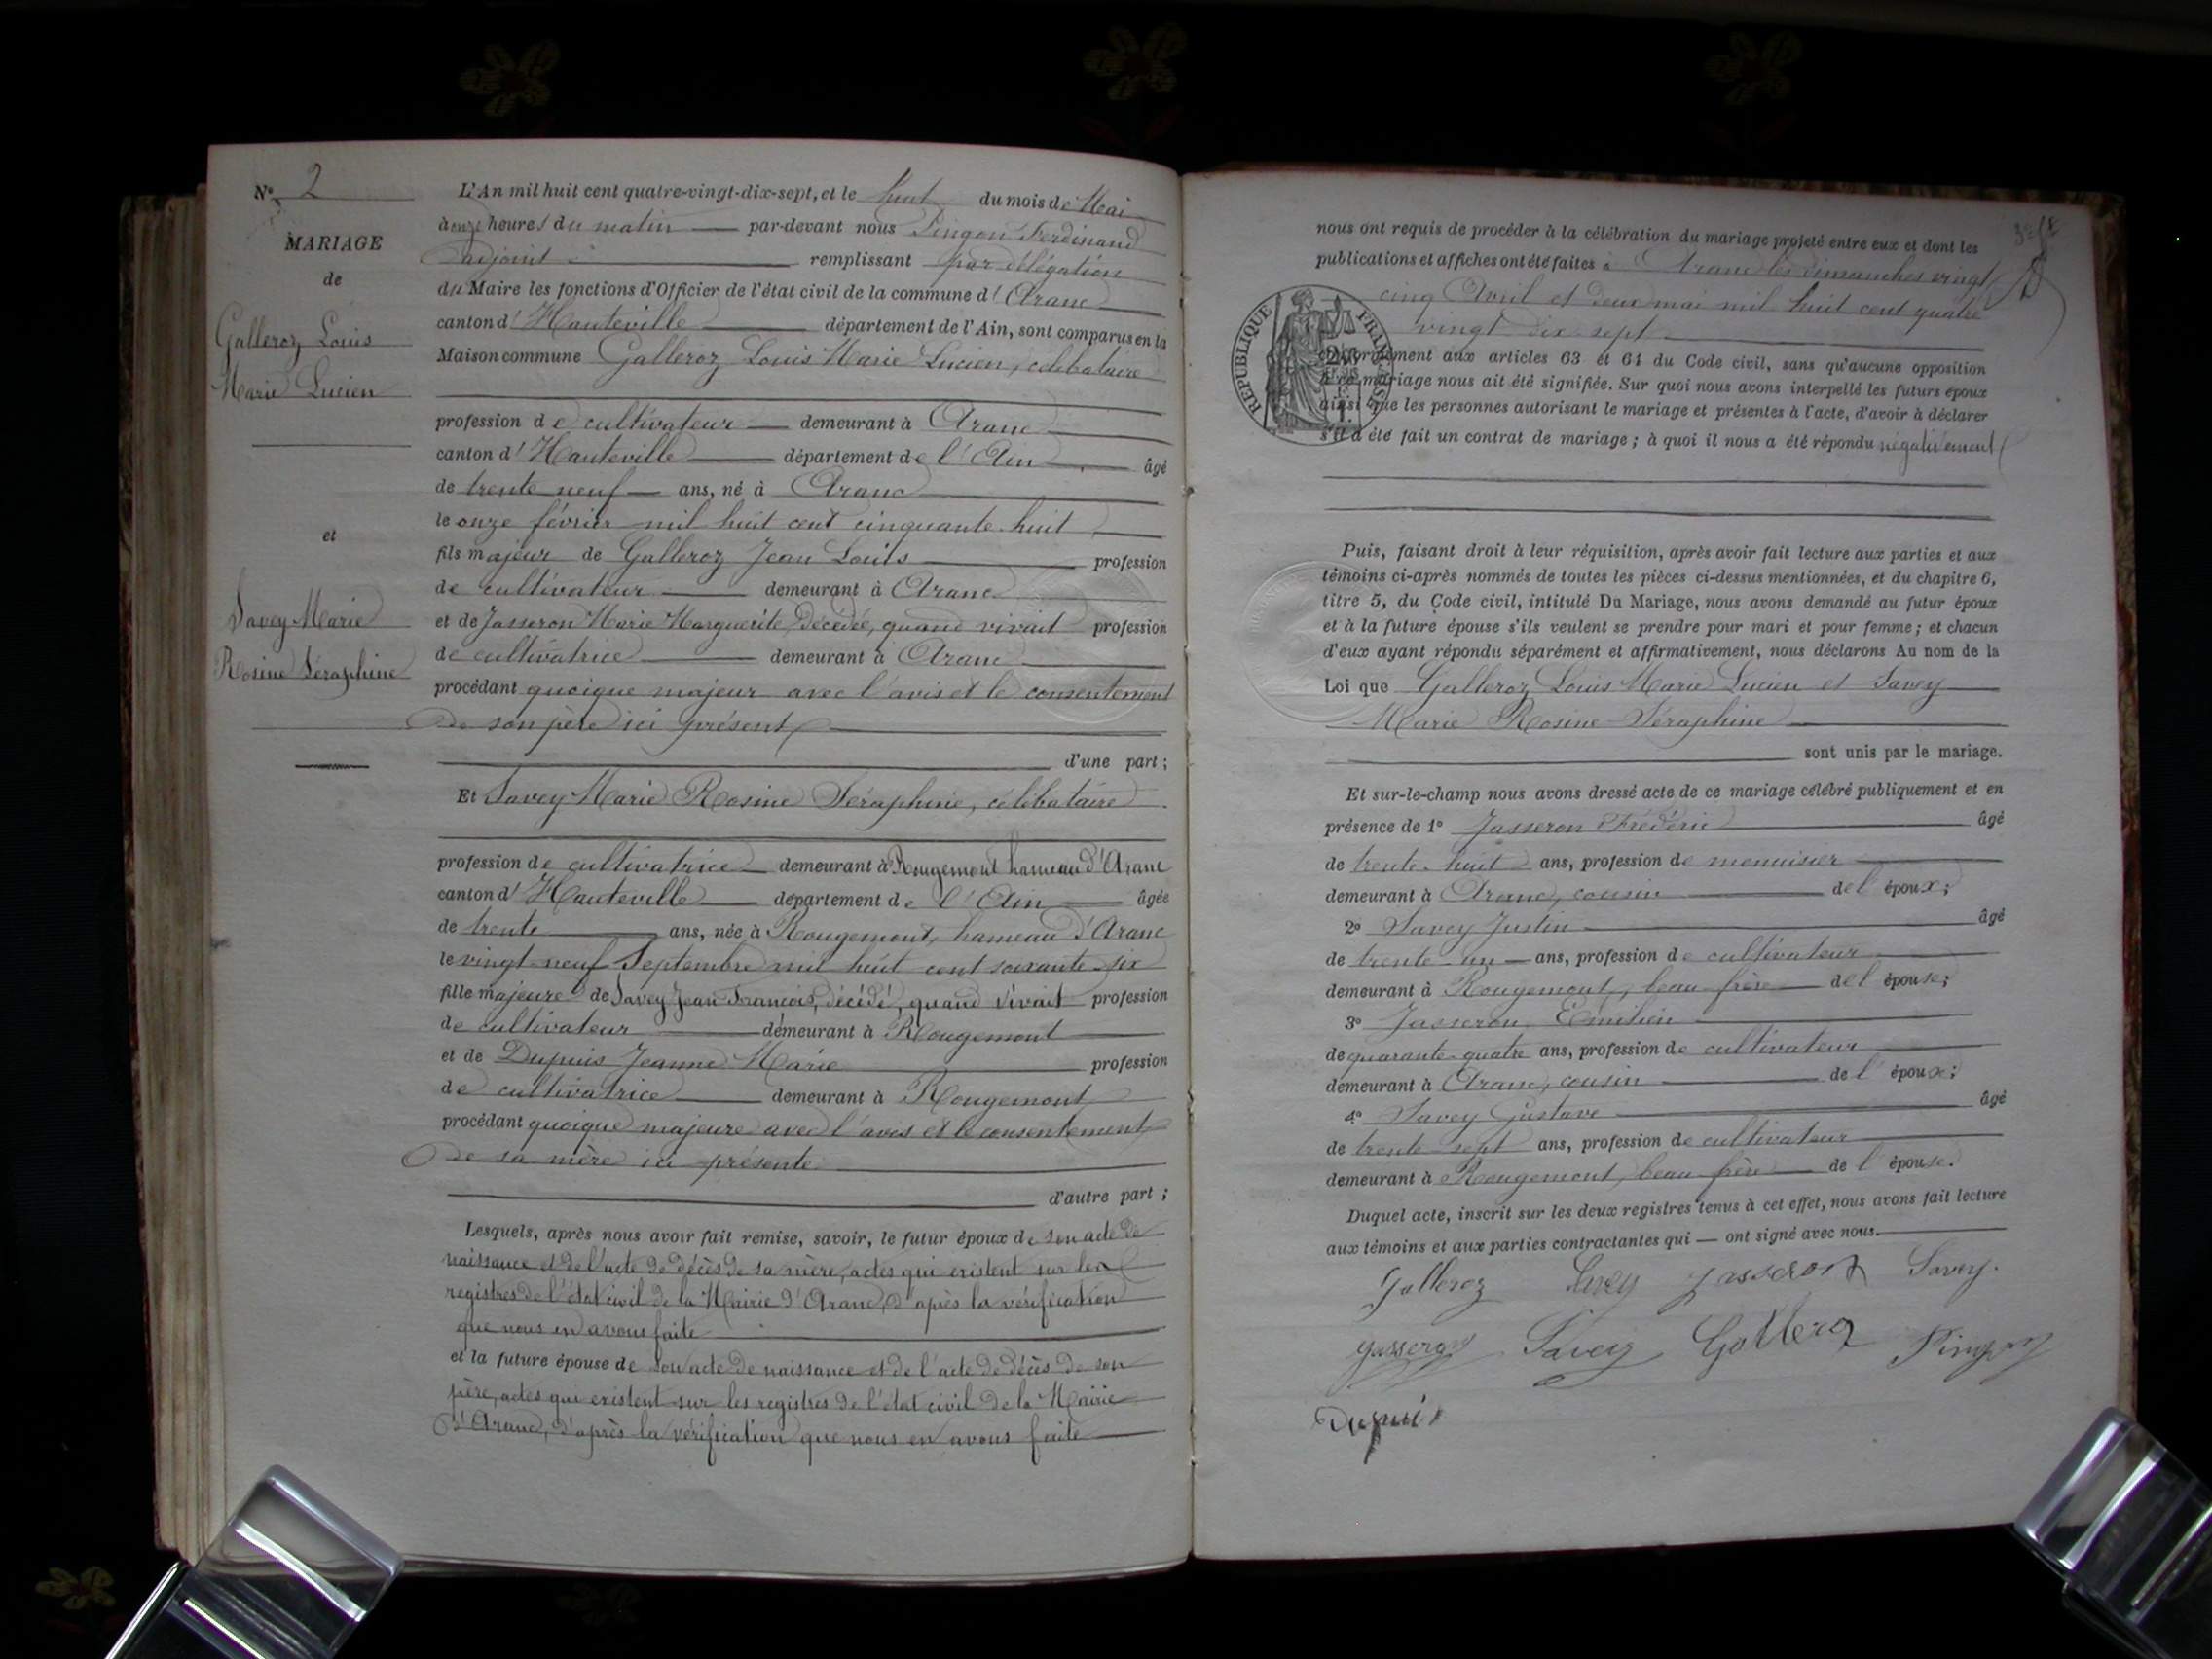 N° 2
MARIAGE
de
Galleroz Louis
Marie Lucien
et
Savey Marie
Rosine Séraphine
L'An mil huit cent quatre-vingt-dix-sept, et le huit du mois de Mai
à onze heures du matin par-devant nous Pingon Ferdinand
adjoint remplissant par délégation
du Maire les fonctions d'Officier de l'état civil de la commune d'Aranc
canton d'Hauteville département de l'Ain, sont comparus en la
Maison commune Galleroz Louis Marie Lucien, célebataire
profession de cultivateur demeurant à Aranc
canton d'Hauteville département de l'Ain âgé
de trente neuf ans, né à Aranc
le onze février mil huit cent cinquante-huit
fils majeur de Galleroz Jean Louis profession
de cultivateur demeurant à Aranc
et de Jasseron Marie Marguerite, décédée, quand vivait profession
de cultivatrice demeurant à Aranc
procédant quoique majeur avec l'avis et le consentement
de son père ici présent
d'une part ;
Et Savey Marie Rosine Séraphine, célébataire
profession de cultivatrice demeurant à Rougemont hameau d'Aranc
canton d'Hauteville département de l'Ain âgée
de trente ans, née à Rougemont, hameau d'Aranc
le vingt-neuf Septembre mil huit cent soixante-six
fille majeure de Savey Jean François, décédé, quand vivait profession
de cultivateur demeurant à Rougemont
et de Dupuis Jeanne Marie profession
de cultivatrice demeurant à Rougemont
procédant quoique majeure avec l'avis et le consentement
de sa mère ici présente
d'autre part ;
Lesquels, après nous avoir fait remise, savoir, le futur époux de son acte de
naissance et de l'acte de décès de sa mère, actes qui existent sur les
registres de l'état civil de la Mairie d'Aranc, d'après la vérification
que nous en avons faite
et la future épouse de son acte de naissance et de l'acte de décès de son
père, actes qui existent sur les registres de l'état civil de la Mairie
d'Aranc, d'après la vérification que nous en avons faite
nous ont requis de procéder à la célébration du mariage projeté entre eux et dont les
publications et affiches ont été faites à Aranc les dimanches vingt
cinq Avril et deux mai mil huit cent quatre
vingt dix sept
RÉPUBLIQUE FRANÇAISE
conformément aux articles 63 et 64 du Code civil, sans qu'aucune opposition
à ce mariage nous ait été signifiée. Sur quoi nous avons interpellé les futurs époux
ainsi que les personnes autorisant le mariage et présentes à l'acte, d'avoir à déclarer
s'il a été fait un contrat de mariage ; à quoi il nous a été répondu négativement
Puis, faisant droit à leur réquisition, après avoir fait lecture aux parties et aux
témoins ci-après nommés de toutes les pièces ci-dessus mentionnées, et du chapitre 6,
titre 5, du Code civil, intitulé Du Mariage, nous avons demandé au futur époux
et à la future épouse s'ils veulent se prendre pour mari et pour femme ; et chacun
d'eux ayant répondu séparément et affirmativement, nous déclarons Au nom de la
Loi que Galleroz Louis Marie Lucien et Savey
Marie Rosine Séraphine
sont unis par le mariage.
Et sur-le-champ nous avons dressé acte de ce mariage célébré publiquement et en
présence de 1° Jasseron Frédéric âgé
de trente-huit ans, profession de menuisier
demeurant à Aranc, cousin de l'époux ;
2° Savey Justin âgé
de trente-un ans, profession de cultivateur
demeurant à Rougemont, beau-frère de l'épouse ;
3° Jasseron Emilien
de quarante-quatre ans, profession de cultivateur
demeurant à Aranc, cousin de l'époux ;
4° Savey Gustave âgé
de trente-sept ans, profession de cultivateur
demeurant à Rougemont, beau frère de l'épouse.
Duquel acte, inscrit sur les deux registres tenus à cet effet, nous avons fait lecture
aux témoins et aux parties contractantes qui — ont signé avec nous.
Galleroz Savey Jasseron Savey.
Jasseron Savey Galleroz Pingon
Dupuis